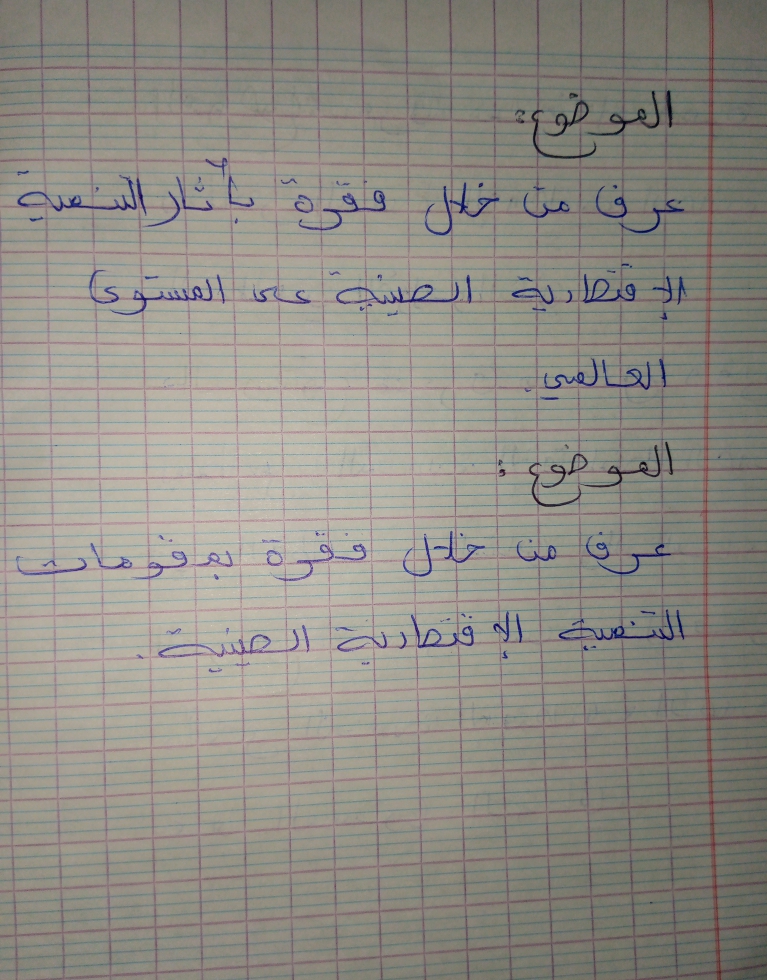 الموضوع:
عرف من خلال فقرة بآثار التنمية
الإقتصادية الصينية على المستوى
العالمي.
الموضوع:
عرف من خلال فقرة بمقومات
التنمية الإقتصادية الصينية.